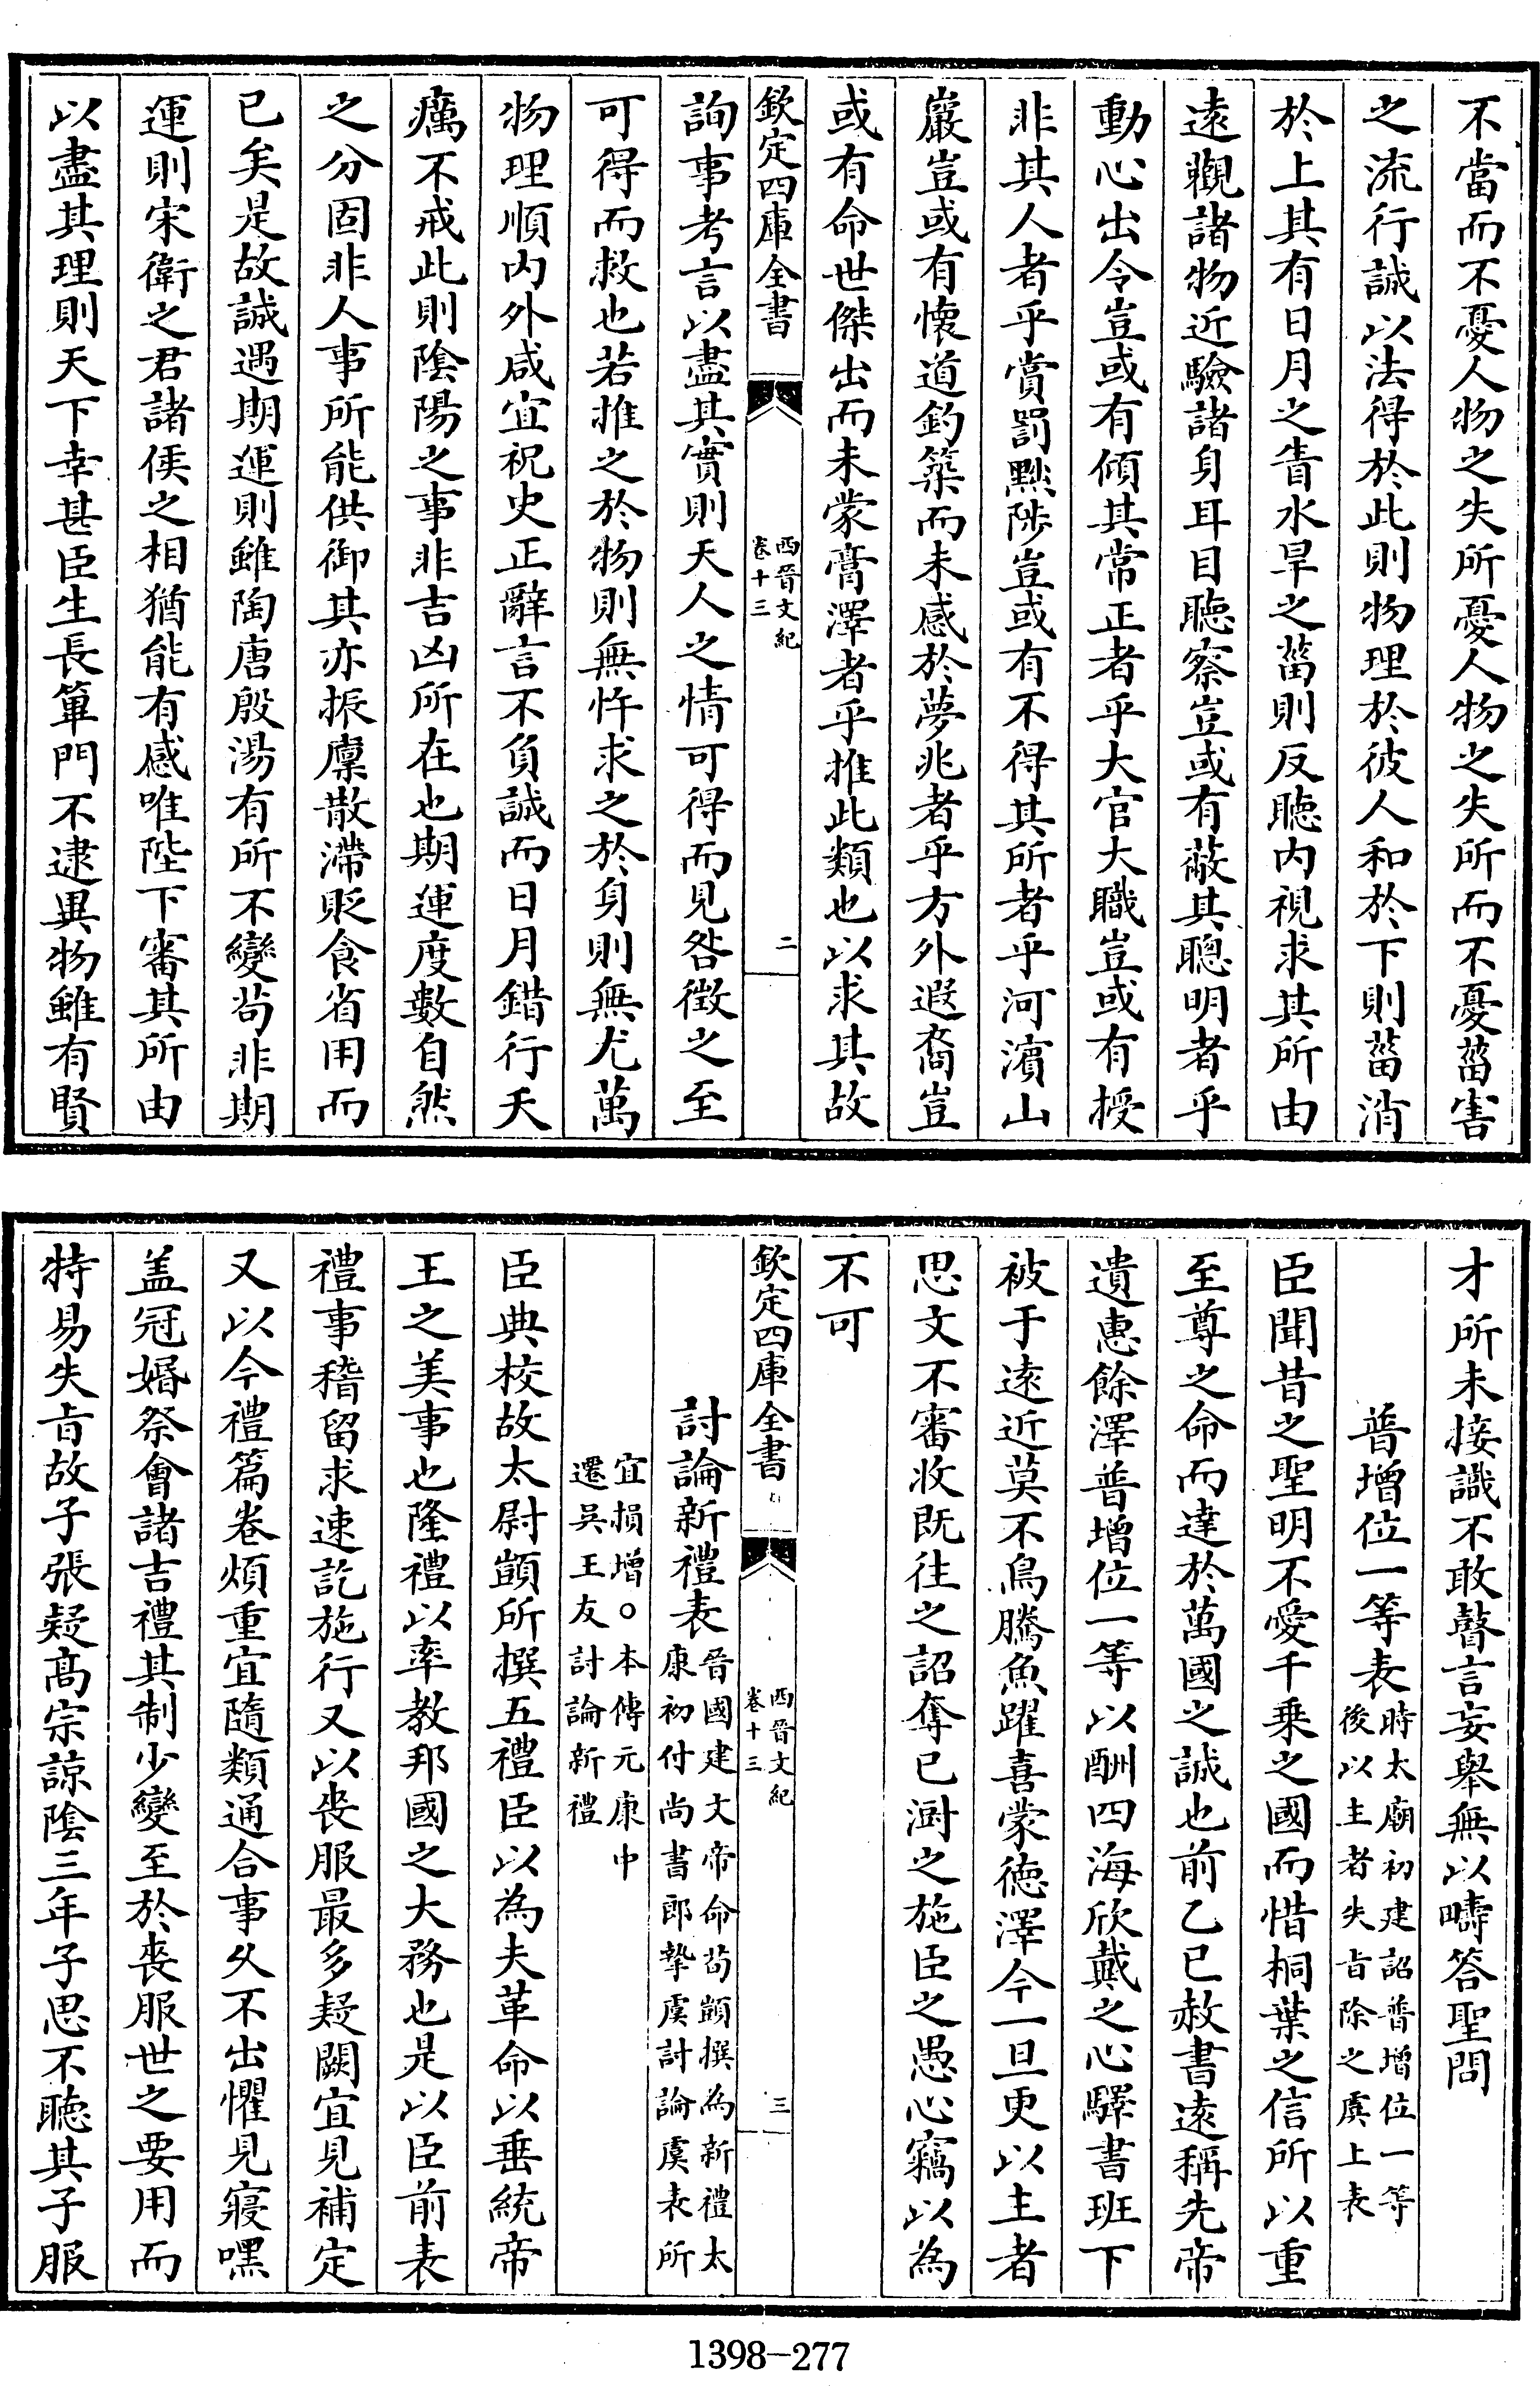 不當而不憂人物之失所憂人物之失所而不憂菑害
之流行誠以法得於此則物理於彼人和於下則菑消
於上其有日月之眚水旱之菑則反聽內視求其所由
遠觀諸物近驗諸身耳目聽察豈或有蔽其聰明者乎
動心出令豈或有傾其常正者乎大官大職豈或有授
非其人者乎賞罰黜陟豈或有不得其所者乎河濱山
巖豈或有懷道釣築而未感於夢兆者乎方外遐裔豈
或有命世傑出而未蒙膏澤者乎推此類也以求其故
欽定四庫全書
西晉文紀
卷十三
二
詢事考言以盡其實則天人之情可得而見咎徵之至
可得而救也若推之於物則無忤求之於身則無尤萬
物理順內外咸宜祝史正辭言不負誠而日月錯行夭
癘不戒此則陰陽之事非吉凶所在也期運度數自然
之分固非人事所能供御其亦振廩散滯貶食省用而
已矣是故誠遇期運則雖陶唐殷湯有所不變茍非期
運則宋衛之君諸侯之相猶能有感唯陛下審其所由
以盡其理則天下幸甚臣生長篳門不逮異物雖有賢
才所未接識不敢瞽言妄舉無以疇答聖問
普增位一等表
時太廟初建詔普增位一等
後以主者失旨除之虞上表
臣聞昔之聖明不愛千乗之國而惜桐葉之信所以重
至尊之命而達於萬國之誠也前乙巳赦書遠稱先帝
遺惠餘澤普增位一等以酬四海欣戴之心驛書班下
被于遠近莫不鳥騰魚躍喜蒙德澤今一旦更以主者
思文不審收既往之詔奪已澍之施臣之愚心竊以為
不可
欽定四庫全書
西晉文紀
卷十三
三
討論新禮表
晉國建文帝命荀顗撰為新禮太
康初付尚書郎摯虞討論虞表所
宜損增○本傳元康中
遷吳王友討論新禮
臣典校故太尉顗所撰五禮臣以為夫革命以垂統帝
王之美事也隆禮以率教邦國之大務也是以臣前表
禮事稽留求速訖施行又以喪服最多疑闕宜見補定
又以今禮篇卷煩重宜隨類通合事久不出懼見寢嘿
盖冠婚祭會諸吉禮其制少變至於喪服世之要用而
特易失旨故子張疑髙宗諒陰三年子思不聽其子服
1398-277